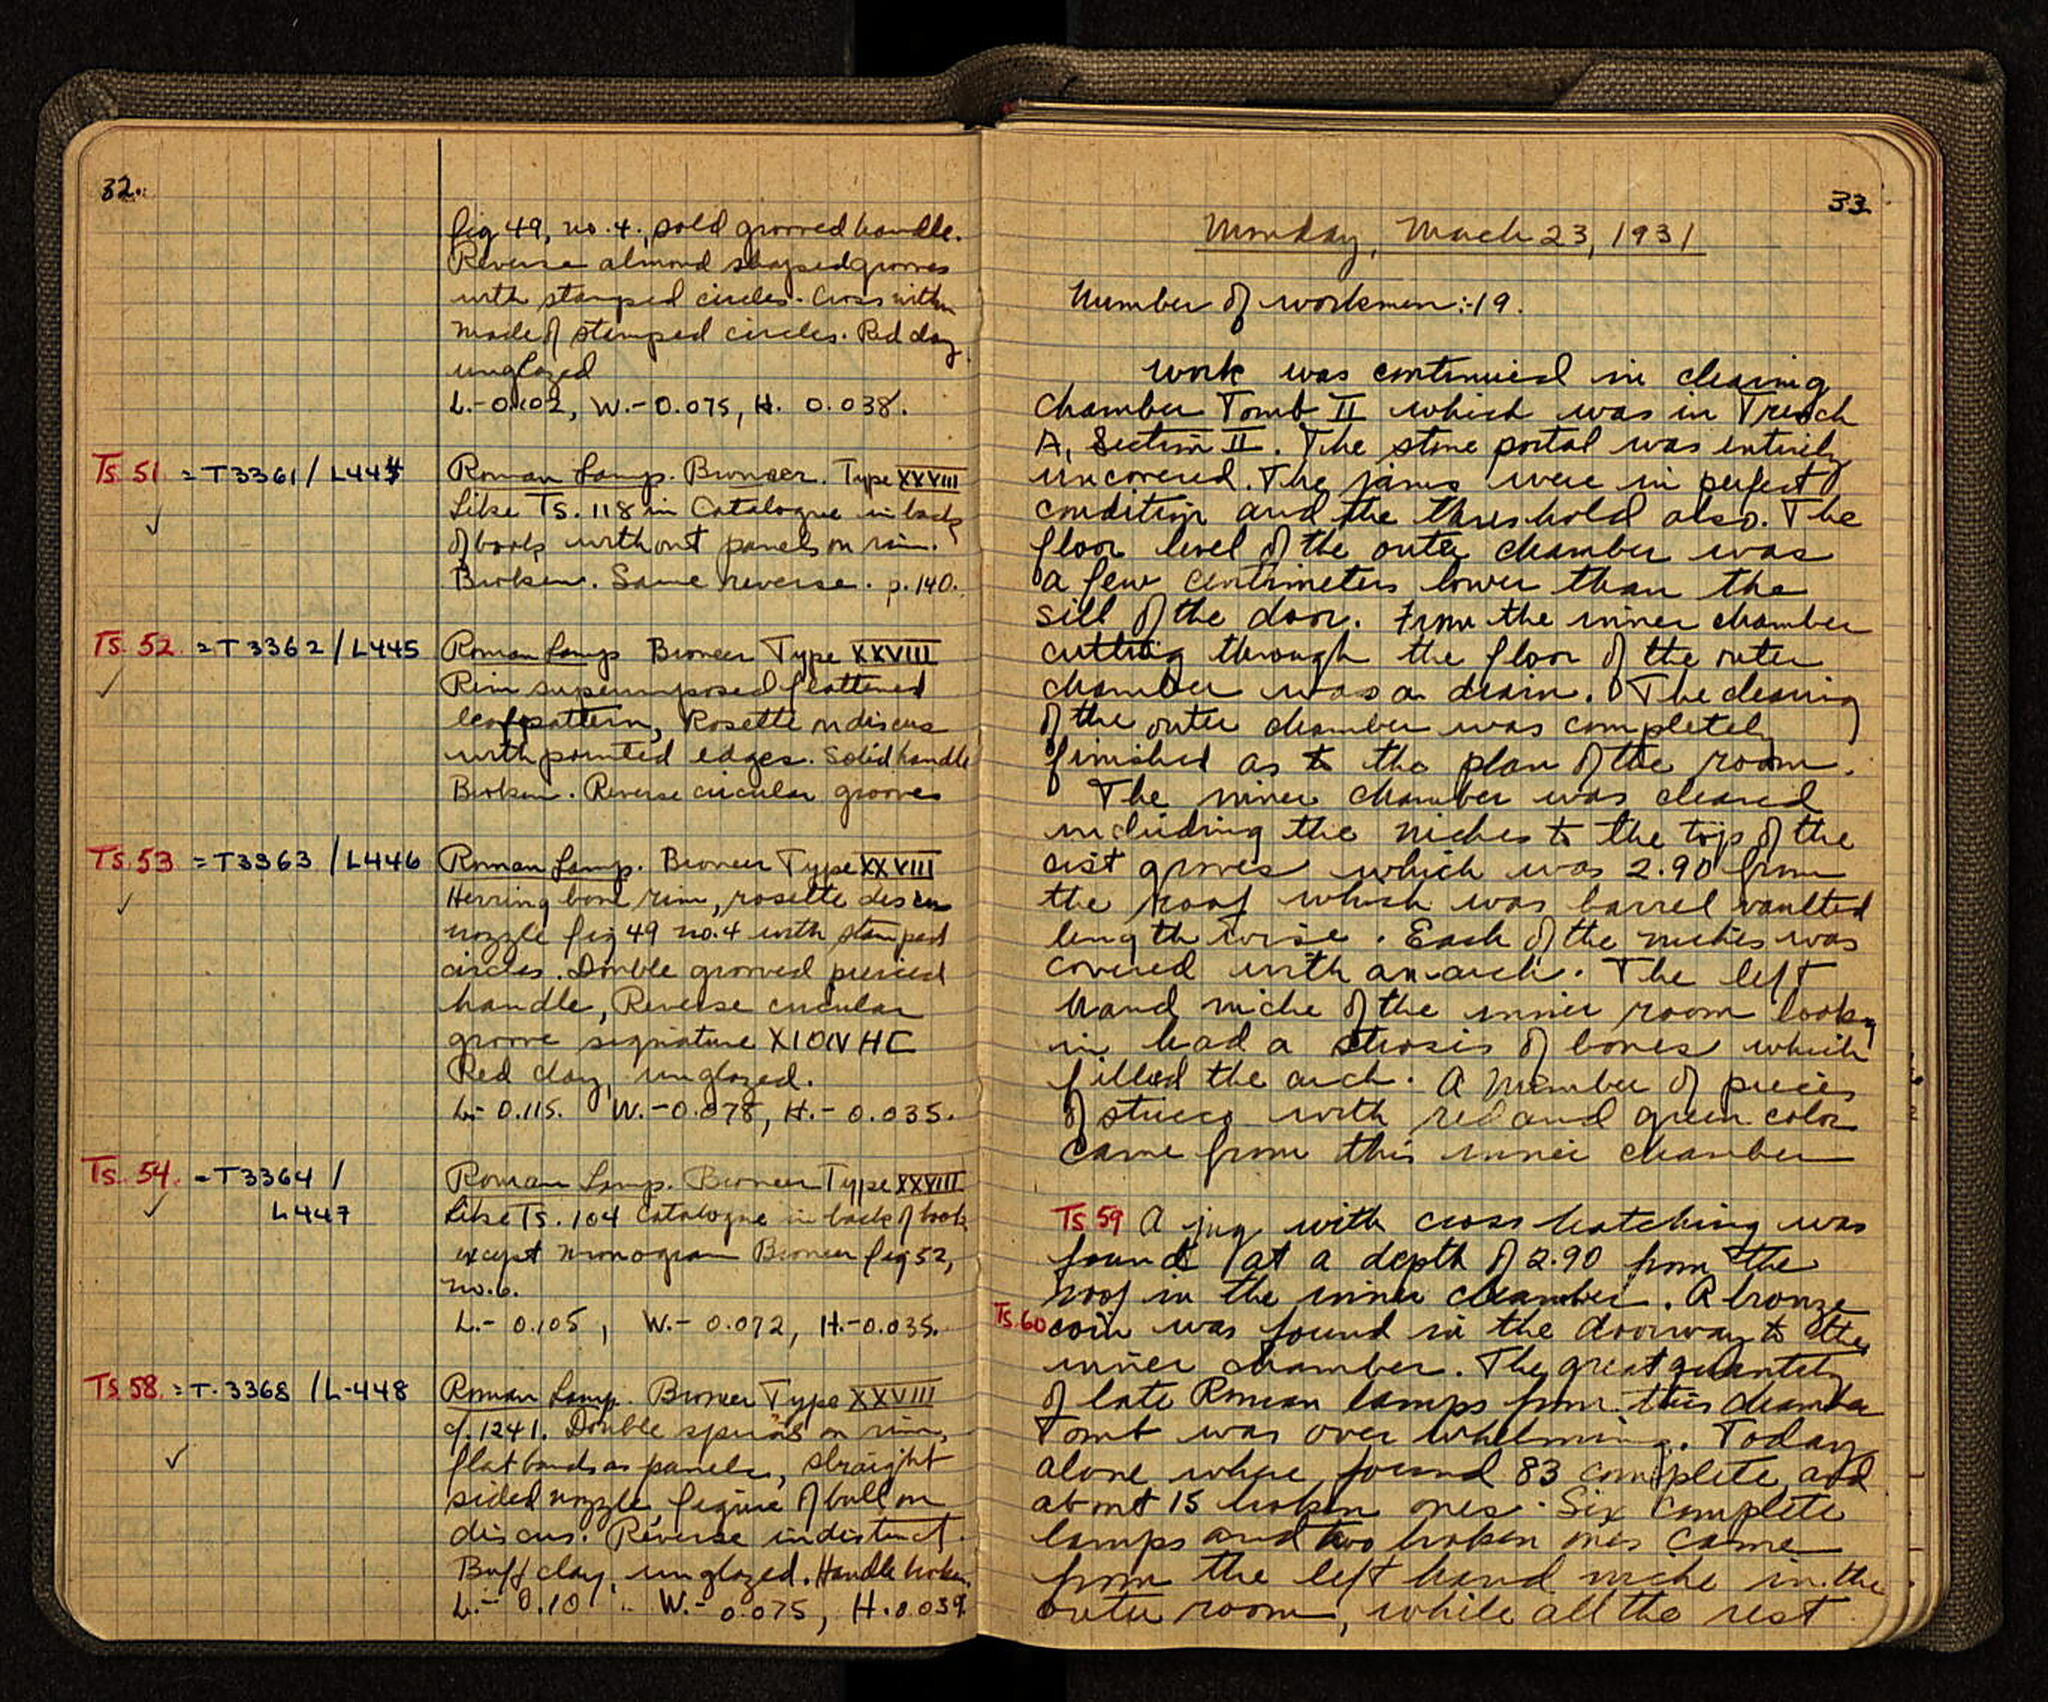 32.
fig 49, no. 4., solid grooved handle.
Reverse almond shaped grooves
with stamped circles. Cross within
made of stamped circles. Red clay
unglazed
L.-0.102, W.-0.075, H. 0.038.
Ts. 51 = T3361 / L444 Roman Lamp. Broneer. Type XXVIII
Like Ts. 118 in Catalogue in back
of book without panels on rim.
Broken. Same reverse. p. 140.
Ts. 52 = T3362 / L445 Roman Lamp Broneer Type XXVIII
Rim superimposed flattened
leaf pattern, Rosette on discus
with pointed edges. Solid handle
Broken. Reverse circular grooves
Ts. 53 = T3363 / L446 Roman Lamp. Broneer Type XXVIII
Herring bone rim, rosette discus
nozzle fig 49 no. 4 with stamped
circles. Double grooved pierced
handle, Reverse circular
groove signature XIONHC
Red clay, unglazed.
L.- 0.115. W.-0.078, H.- 0.035.
Ts. 54. = T3364 / Roman Lamp. Broneer Type XXVIII
L447 Like Ts. 104 Catalogue in back of book
except monogram Broneer fig 52,
no. 6.
L.- 0.105, W.- 0.072, H.-0.035.
Ts 58. = T-3368 / L-448 Roman Lamp. Broneer Type XXVIII
cf. 1241. Double spirals on rim,
flat bands as panels, straight
sided nozzle, figure of bull on
discus. Reverse indistinct.
Buff clay, unglazed. Handle broken.
L.- 0.10 W.- 0.075, H. 0.039.
33.
Monday, March 23, 1931
Number of workmen:-19.
Work was continued in clearing
Chamber Tomb II which was in Trench
A, Section II. The stone portal was entirely
uncovered. The jams were in perfect
condition and the threshold also. The
floor level of the outer chamber was
a few centimeters lower than the
sill of the door. From the inner chamber
cutting through the floor of the outer
chamber was a drain. The clearing
of the outer chamber was completely
finished as to the plan of the room.
The inner chamber was cleared
including the niches to the top of the
cist graves which was 2.90 from
the roof which was barrel vaulted
lengthwise. Each of the niches was
covered with an arch. The left
hand niche of the inner room looking
in had a strosis of bones which
filled the arch. A number of pieces
of stucco with red and green color
came from this inner chamber
Ts 59 A jug with cross hatching was
found at a depth of 2.90 from the
roof in the inner chamber. A bronze
Ts. 60 coin was found in the doorway to the
inner chamber. The great quantity
of late Roman lamps from this chamber
Tomb was over whelming. Today
alone where found 83 complete and
about 15 broken ones. Six complete
lamps and two broken ones came
from the left hand niche in the
outer room, while all the rest